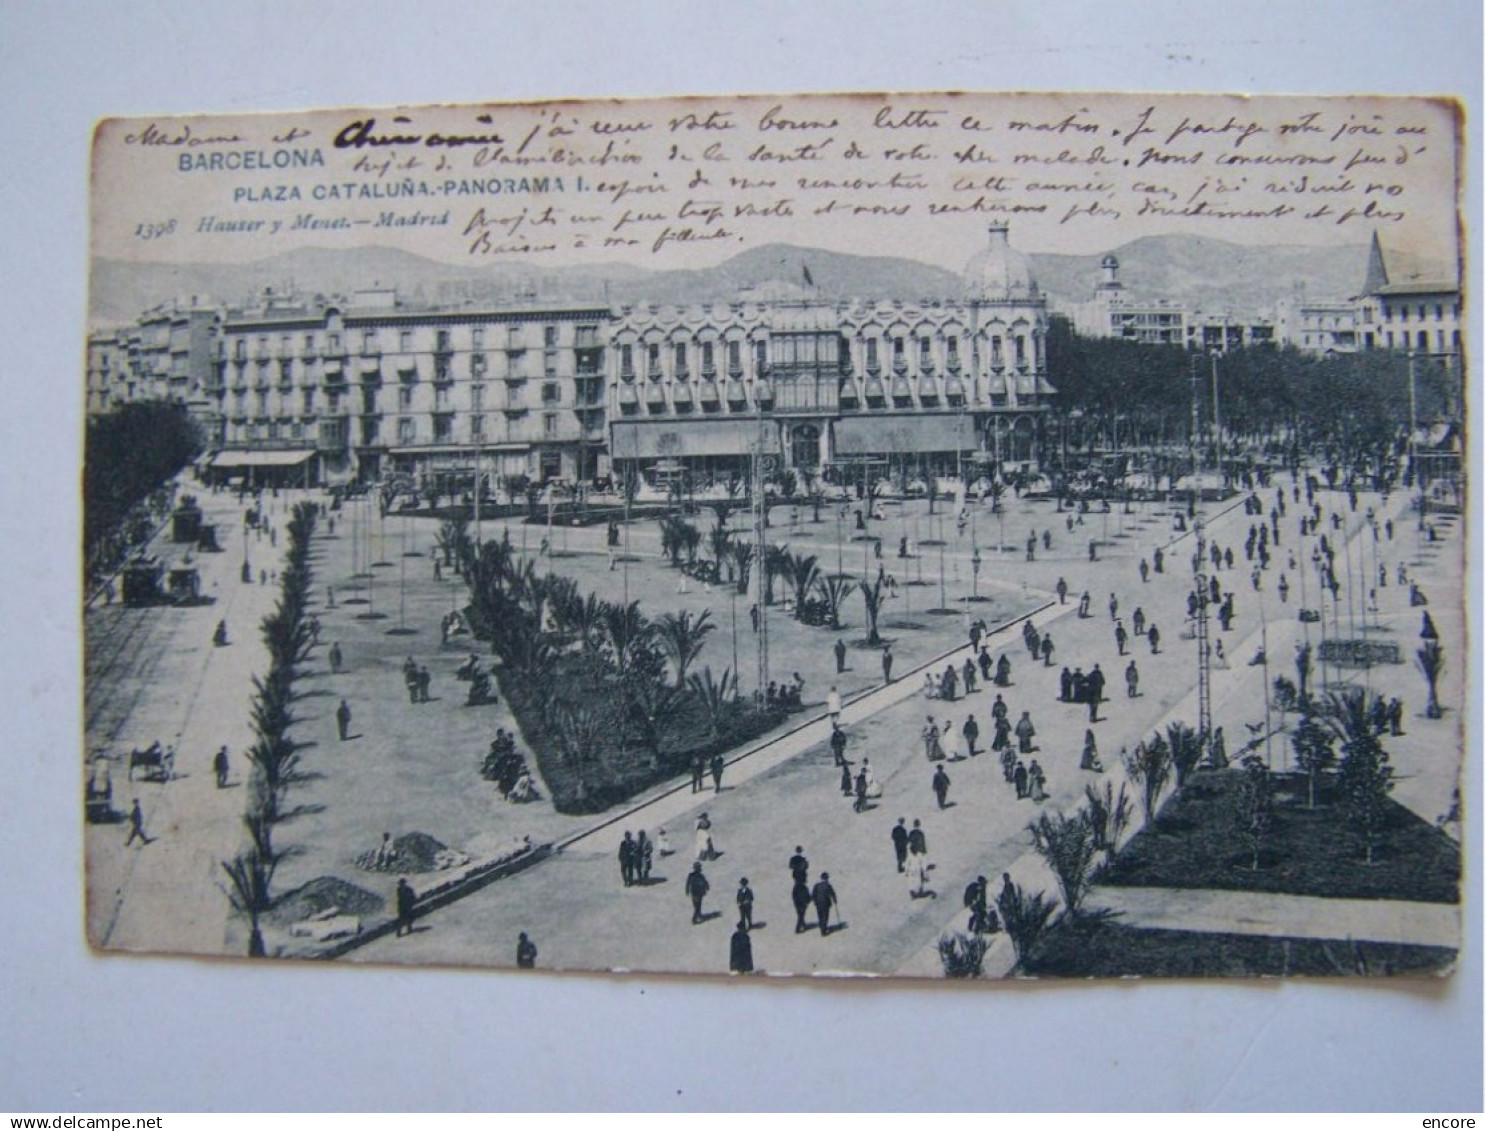 Madame et Chère amie j'ai reçu votre bonne lettre ce matin. Je partage votre joie au
BARCELONA
sujet de l'amélioration de la santé de votre cher malade. Nous conservons peu d'
PLAZA CATALUÑA.-PANORAMA I.
espoir de nous rencontrer cette année, car j'ai réduit nos
1398 Hauser y Menet.—Madrid
projets un peu trop vastes et nous rentrerons plus directement et plus
Baisers à ma filleule.
delcampe.net
encore